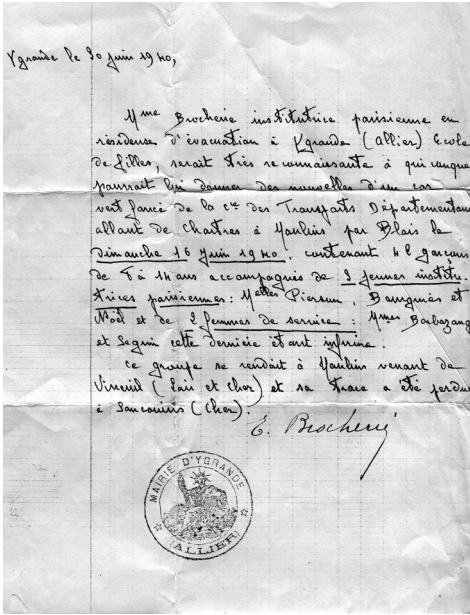 Ygrande le 30 juin 1940,
Mme Brocherie institutrice parisienne en
résidence d'évacuation à Ygrande (Allier) Ecole
de filles, serait très reconnaissante à quiconque
pourrait lui donner des nouvelles d'un car
vert foncé de la Cie des Transports Départementaux
allant de Chartres à Moulins par Blois le
Dimanche 16 juin 1940, contenant 48 garçons
de 6 à 14 ans accompagnés de 3 jeunes institu
trices parisiennes: Melles Pierson, Bougnès et
Noël et de 2 femmes de service: Mmes Barbazang
et Seguin cette dernière étant infirme.
Ce groupe se rendait à Moulins venant de
Vineuil (Loir et Cher) et sa trace a été perdue
à Sancoins (Cher).
E. Brocherie
MAIRIE D'YGRANDE
(ALLIER)